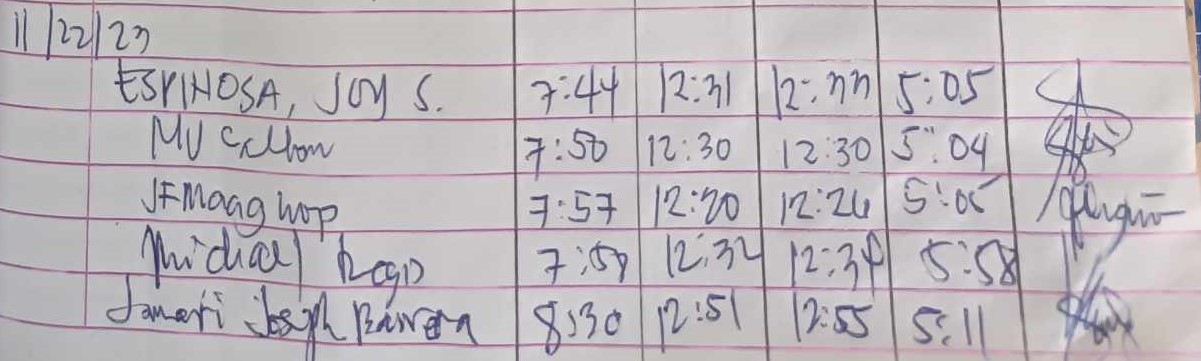 11/22/23
ESPINOSA, JOY S. 7:44 12:31 12:33 5:05
MV 7:50 12:30 12:30 5:04
JFMaaghop 7:57 12:20 12:26 5:05
Michael 7:59 12:32 12:34 5:58
Joseph Barrera 8:30 12:51 12:55 5:11